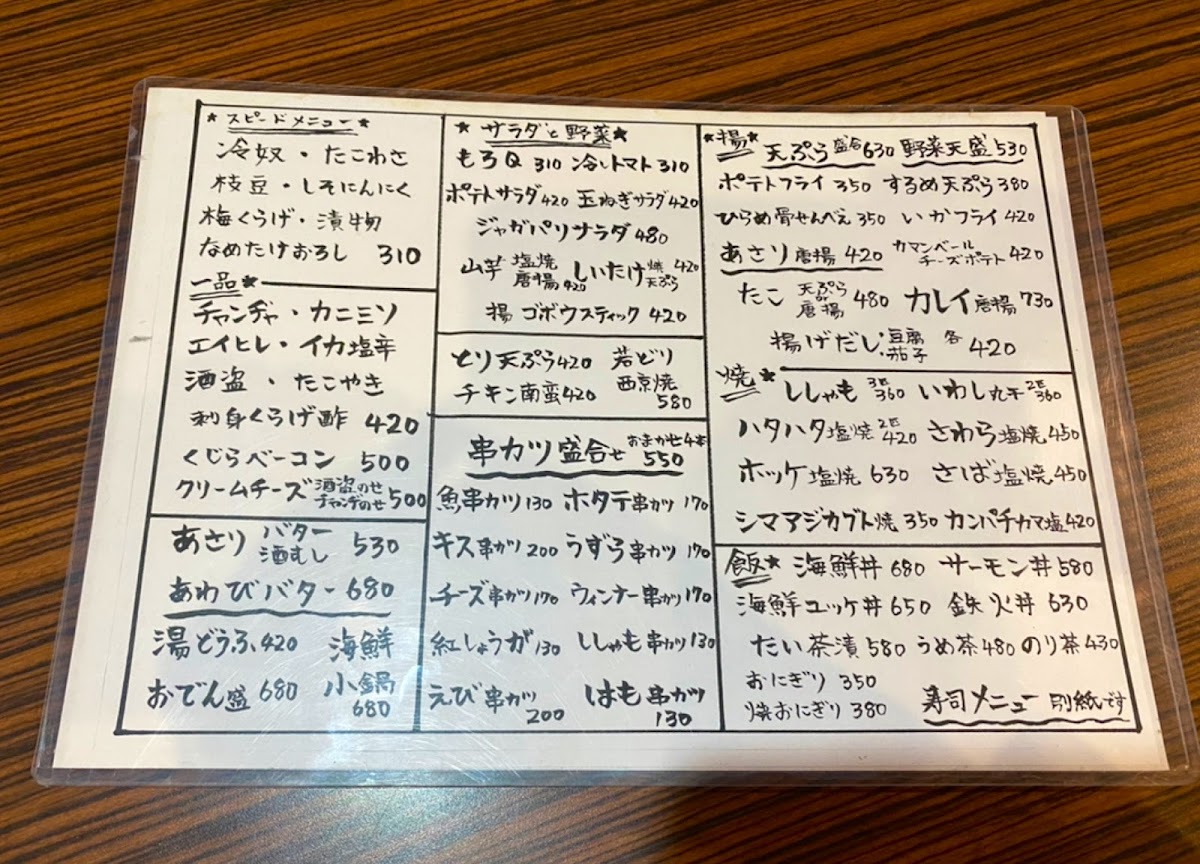 ★スピードメニュー★
冷奴・たこわさ
枝豆・しそにんにく
梅くらげ・漬物
なめたけおろし 310
一品★
チャンヂャ・カニミソ
エイヒレ・イカ塩辛
酒盗・たこやき
刺身くらげ酢 420
くじらベーコン 500
クリームチーズ 酒盗のせ チャンヂのせ 500
あさり バター 酒むし 530
あわびバター 680
湯どうふ 420 海鮮小鍋 680
おでん盛 680
★サラダと野菜★
もろQ 310 冷しトマト 310
ポテトサラダ 420 玉ねぎサラダ 420
ジャガパリサラダ 480
山芋 塩焼 唐揚 420 しいたけ 焼 天ぷら 420
揚ゴボウスティック 420
とり天ぷら 420 若どり西京焼 580
チキン南蛮 420
串カツ盛合せ おまかせ4本 550
魚串カツ 130 ホタテ串カツ 170
キス串カツ 200 うずら串カツ 170
チーズ串カツ 170 ウィンナー串カツ 170
紅しょうが 130 ししゃも串カツ 130
えび串カツ 200 はも串カツ 130
★揚★ 天ぷら盛合 630 野菜天盛 530
ポテトフライ 350 するめ天ぷら 380
ひらめ骨せんべえ 350 いかフライ 420
あさり唐揚 420 カマンベールチーズポテト 420
たこ 天ぷら or 唐揚 480 カレイ唐揚 730
揚げだし・豆腐・茄子 各420
焼★ ししゃも 3匹 360 いわし丸干 2匹 360
ハタハタ塩焼 2匹 420 さわら塩焼 450
ホッケ塩焼 630 さば塩焼 450
シマアジカブト焼 350 カンパチカマ塩 420
飯★ 海鮮丼 680 サーモン丼 580
海鮮ユッケ丼 650 鉄火丼 630
たい茶漬 580 うめ茶 480 のり茶 430
おにぎり 350
焼おにぎり 380 寿司メニュー 別紙です